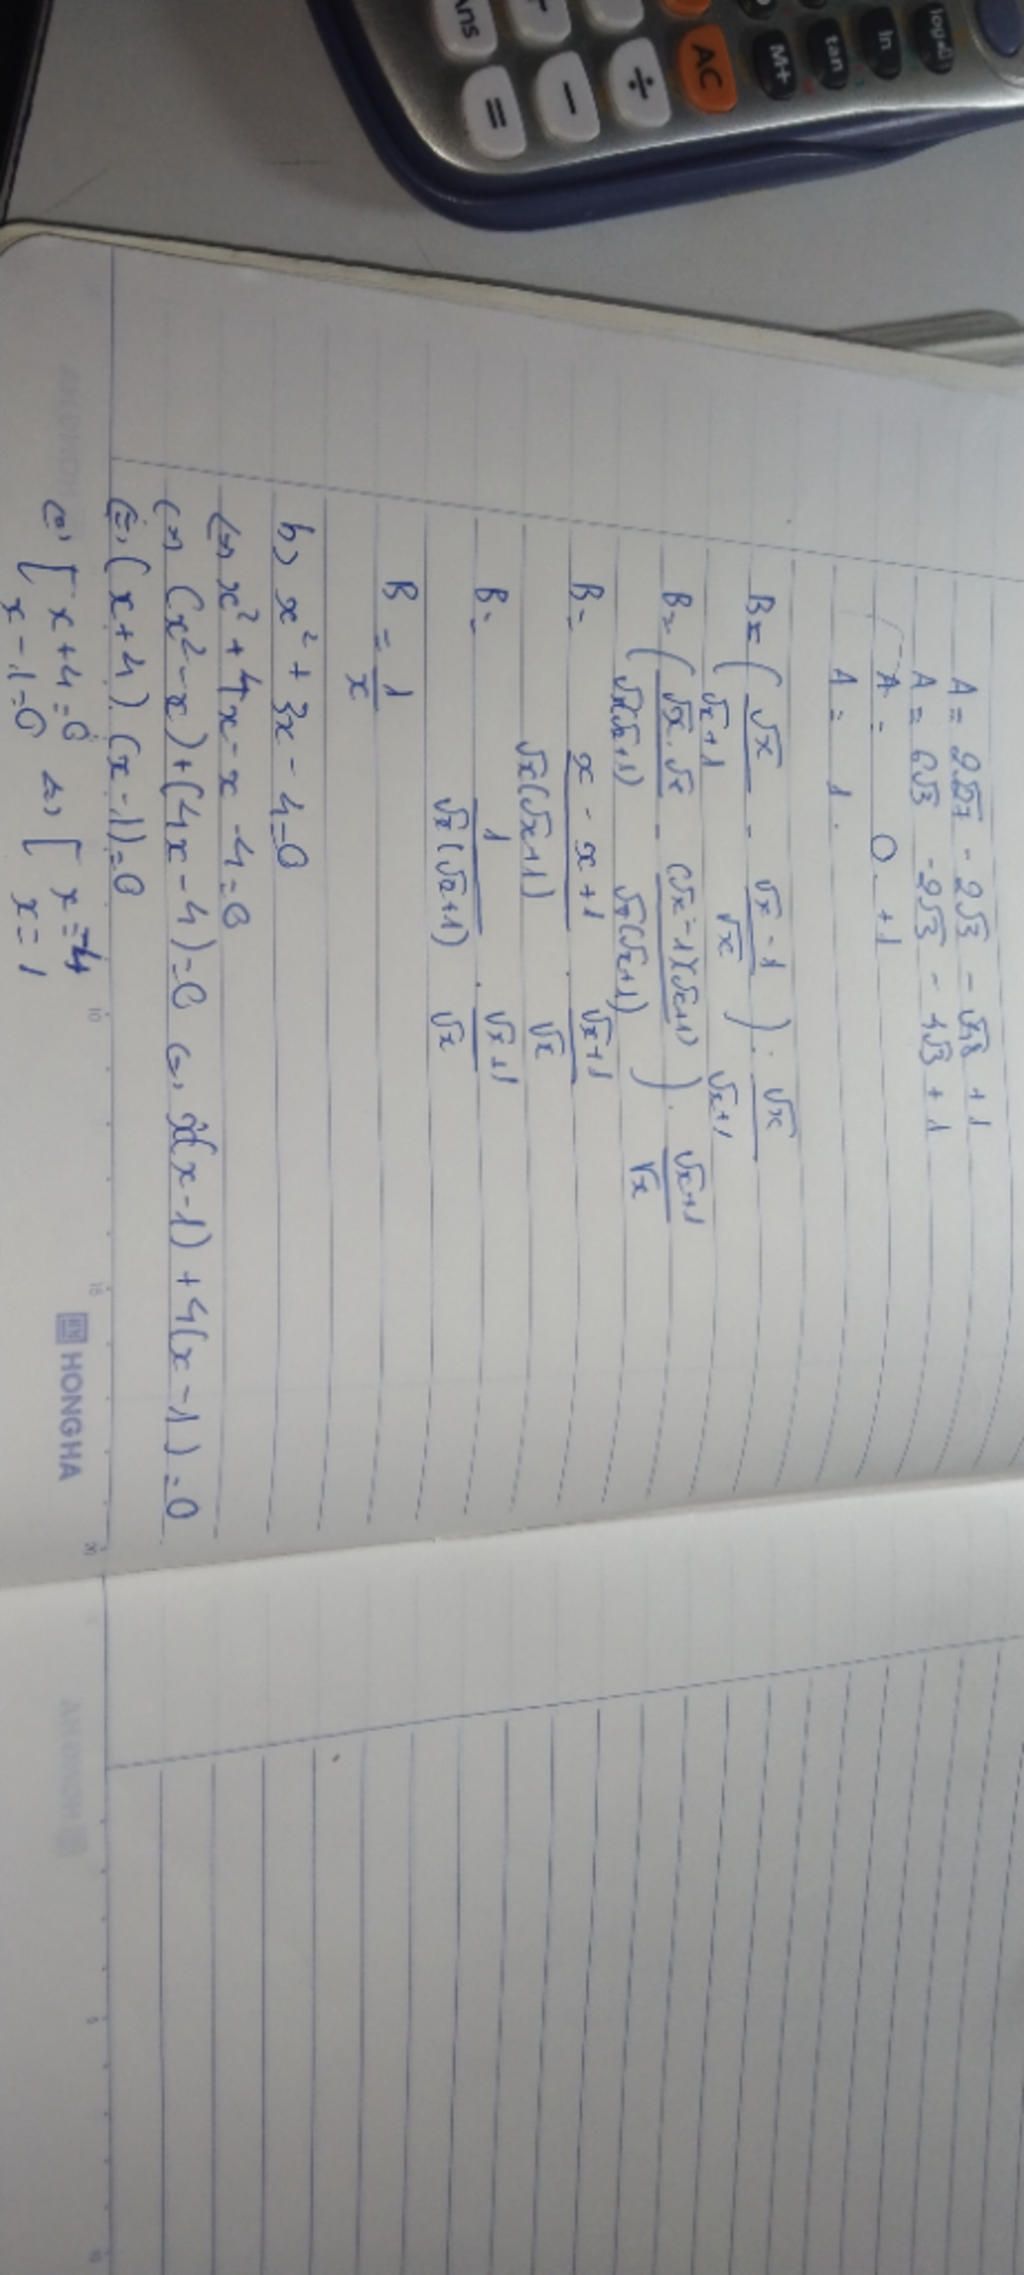 Ans
=
−
÷
AC
M+
tan
ln
A = 2√27 - 2√3 - √48 + 1
A = 6√3 - 2√3 - 4√3 + 1
A = 0 + 1
A = 1.
B = ( √x/(√x+1) - (√x-1)/√x ) : √x/(√x+1)
B = ( √x.√x/(√x(√x+1)) - (√x-1)(√x+1)/(√x(√x+1)) ) . (√x+1)/√x
B = (x - x + 1)/(√x(√x+1)) . (√x+1)/√x
B = 1/(√x(√x+1)) . (√x+1)/√x
B = 1/x
b) x² + 3x - 4 = 0
(=) x² + 4x - x - 4 = 0
(=) (x² - x) + (4x - 4) = 0 (=) x(x - 1) + 4(x - 1) = 0
(=) (x + 4) (x - 1) = 0
(=) [ x + 4 = 0 (=) [ x = -4
x - 1 = 0 x = 1
HONG HA
5
10
15
20
5
10